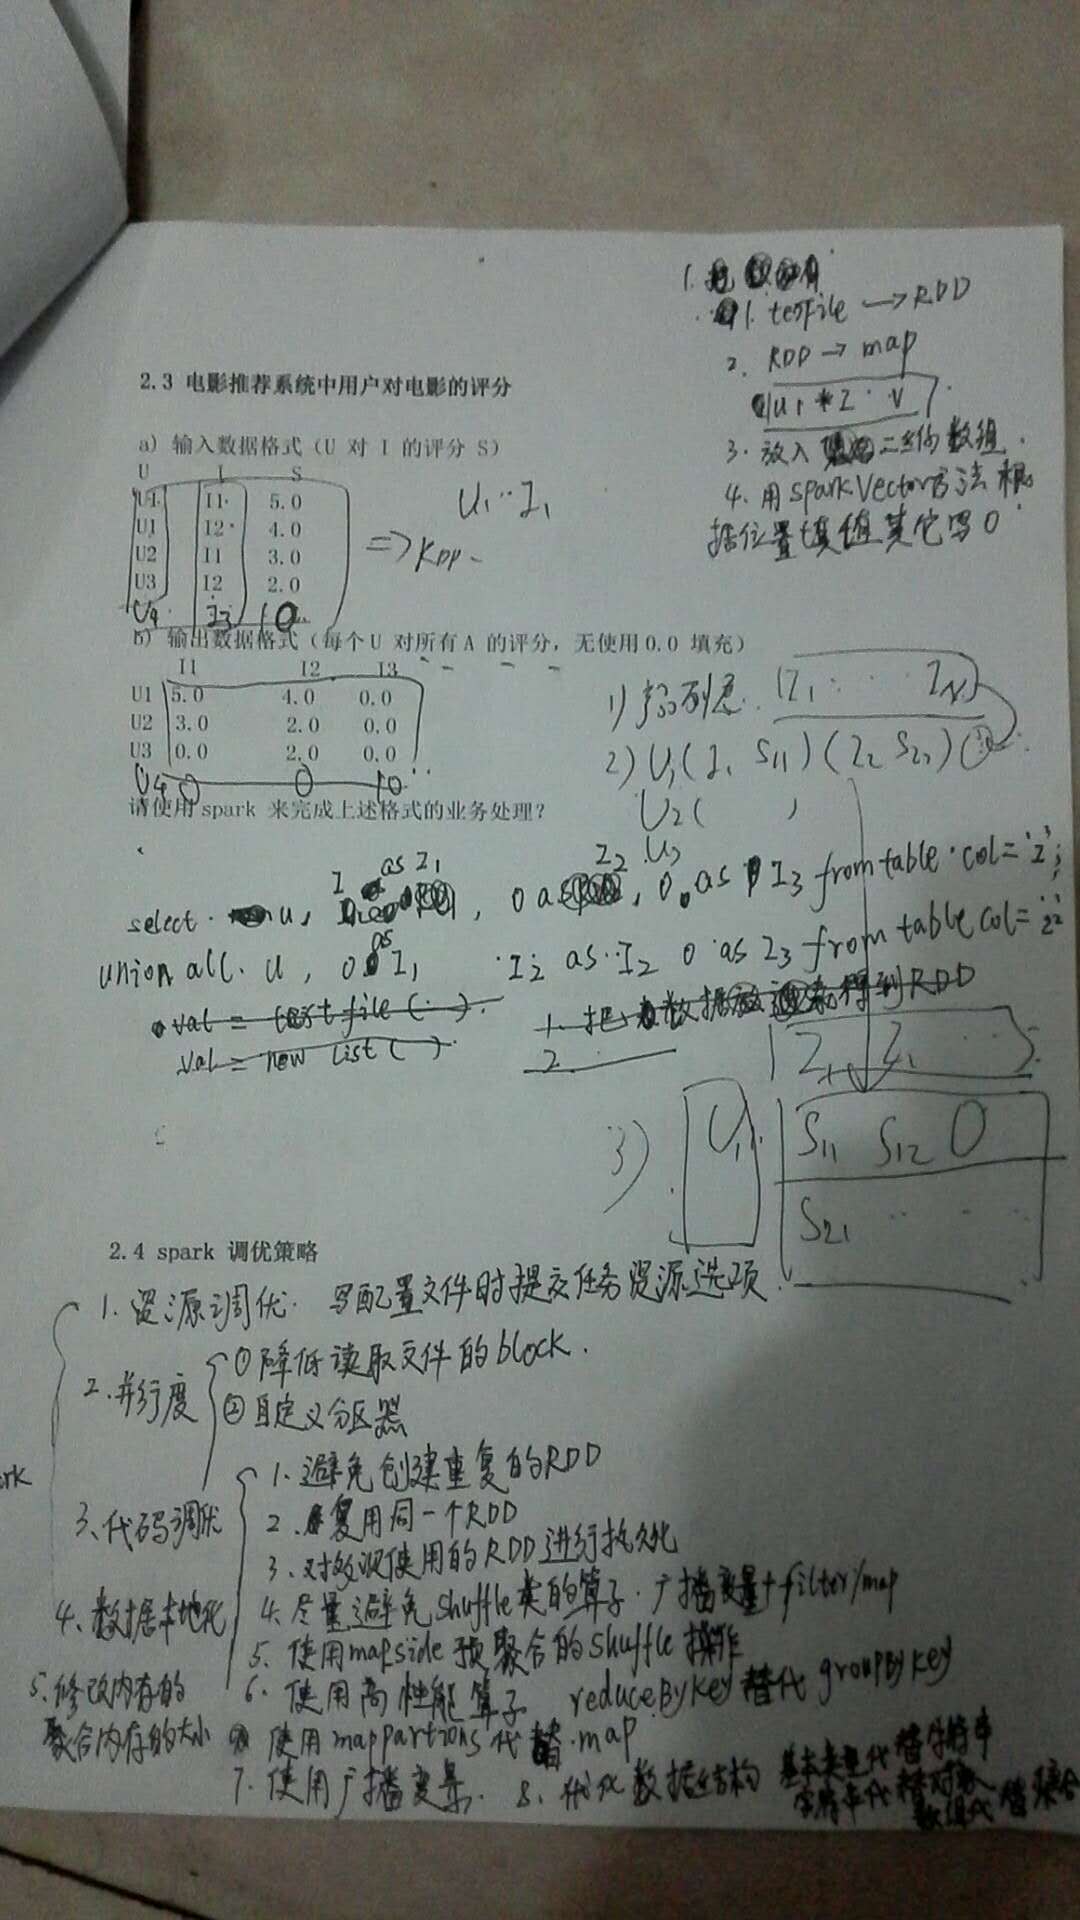 1.
1. textFile → RDD
2. RDD → map
3. 放入 二维数组
4. 用sparkVector方法 根
据位置填值其它写0
2.3 电影推荐系统中用户对电影的评分
a) 输入数据格式（U 对 I 的评分 S）
U I S
U1 I1 5.0
U1 I2 4.0
U2 I1 3.0
U3 I2 2.0
U4 I3 10
U1 I1
⇒ RDD
b) 输出数据格式（每个 U 对所有 A 的评分，无使用 0.0 填充）
I1 I2 I3
U1 5.0 4.0 0.0
U2 3.0 2.0 0.0
U3 0.0 2.0 0.0
U4 0 0 10
请使用 spark 来完成上述格式的业务处理？
1) I1 IN
2) U1(I1 S11)(I2 S22)
U2( )
U3
select u, I as I1, 0 as I2, 0 as I3 from table col='I1'
union all u, 0 as I1 I2 as I2 0 as I3 from table col=
val = textfile( )
val = new list( )
1. 把 数据 得到RDD
2.
3) U1 S11 S12 0
S21
2.4 spark 调优策略
1. 资源调优. 写配置文件时提交任务资源选项
2. 并行度
① 降低读取文件的block.
② 自定义分区器
3、代码调优
1. 避免创建重复的RDD
2. 复用同一个RDD
3. 对多次使用的RDD进行持久化
4. 尽量避免shuffle类的算子. 广播变量+filter/map
5. 使用mapside 预聚合的shuffle 操作
6. 使用高性能算子 reduceByKey 替代 groupByKey
使用 mappartions 代替 map
7. 使用广播变量. 8. 优化数据结构 基本类型代替字符串
字符串代替对象
数组代替集合
4、数据本地化
5. 修改内存的
聚合内存的大小
rk